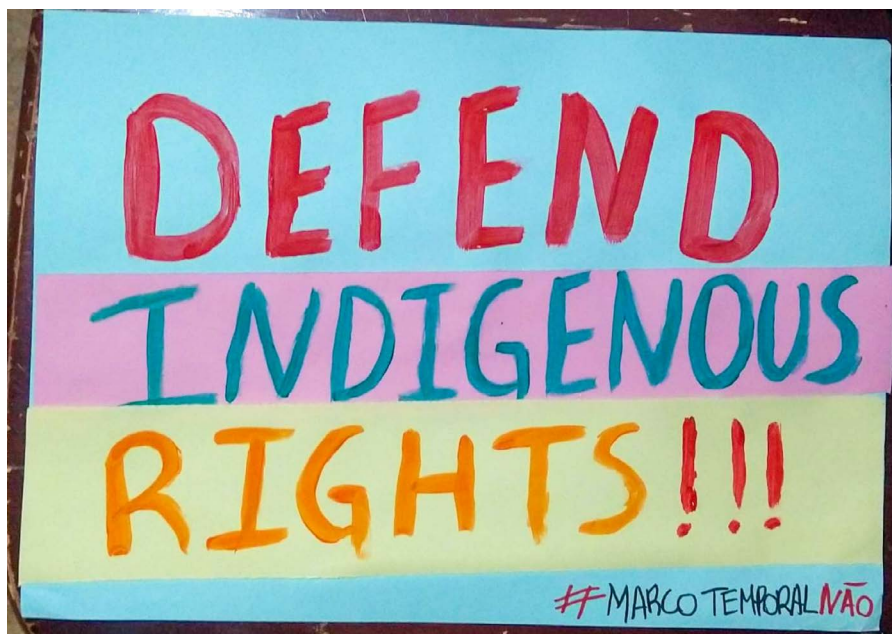 DEFEND
INDIGENOUS
RIGHTS!!!
#MARCO TEMPORAL NÃO